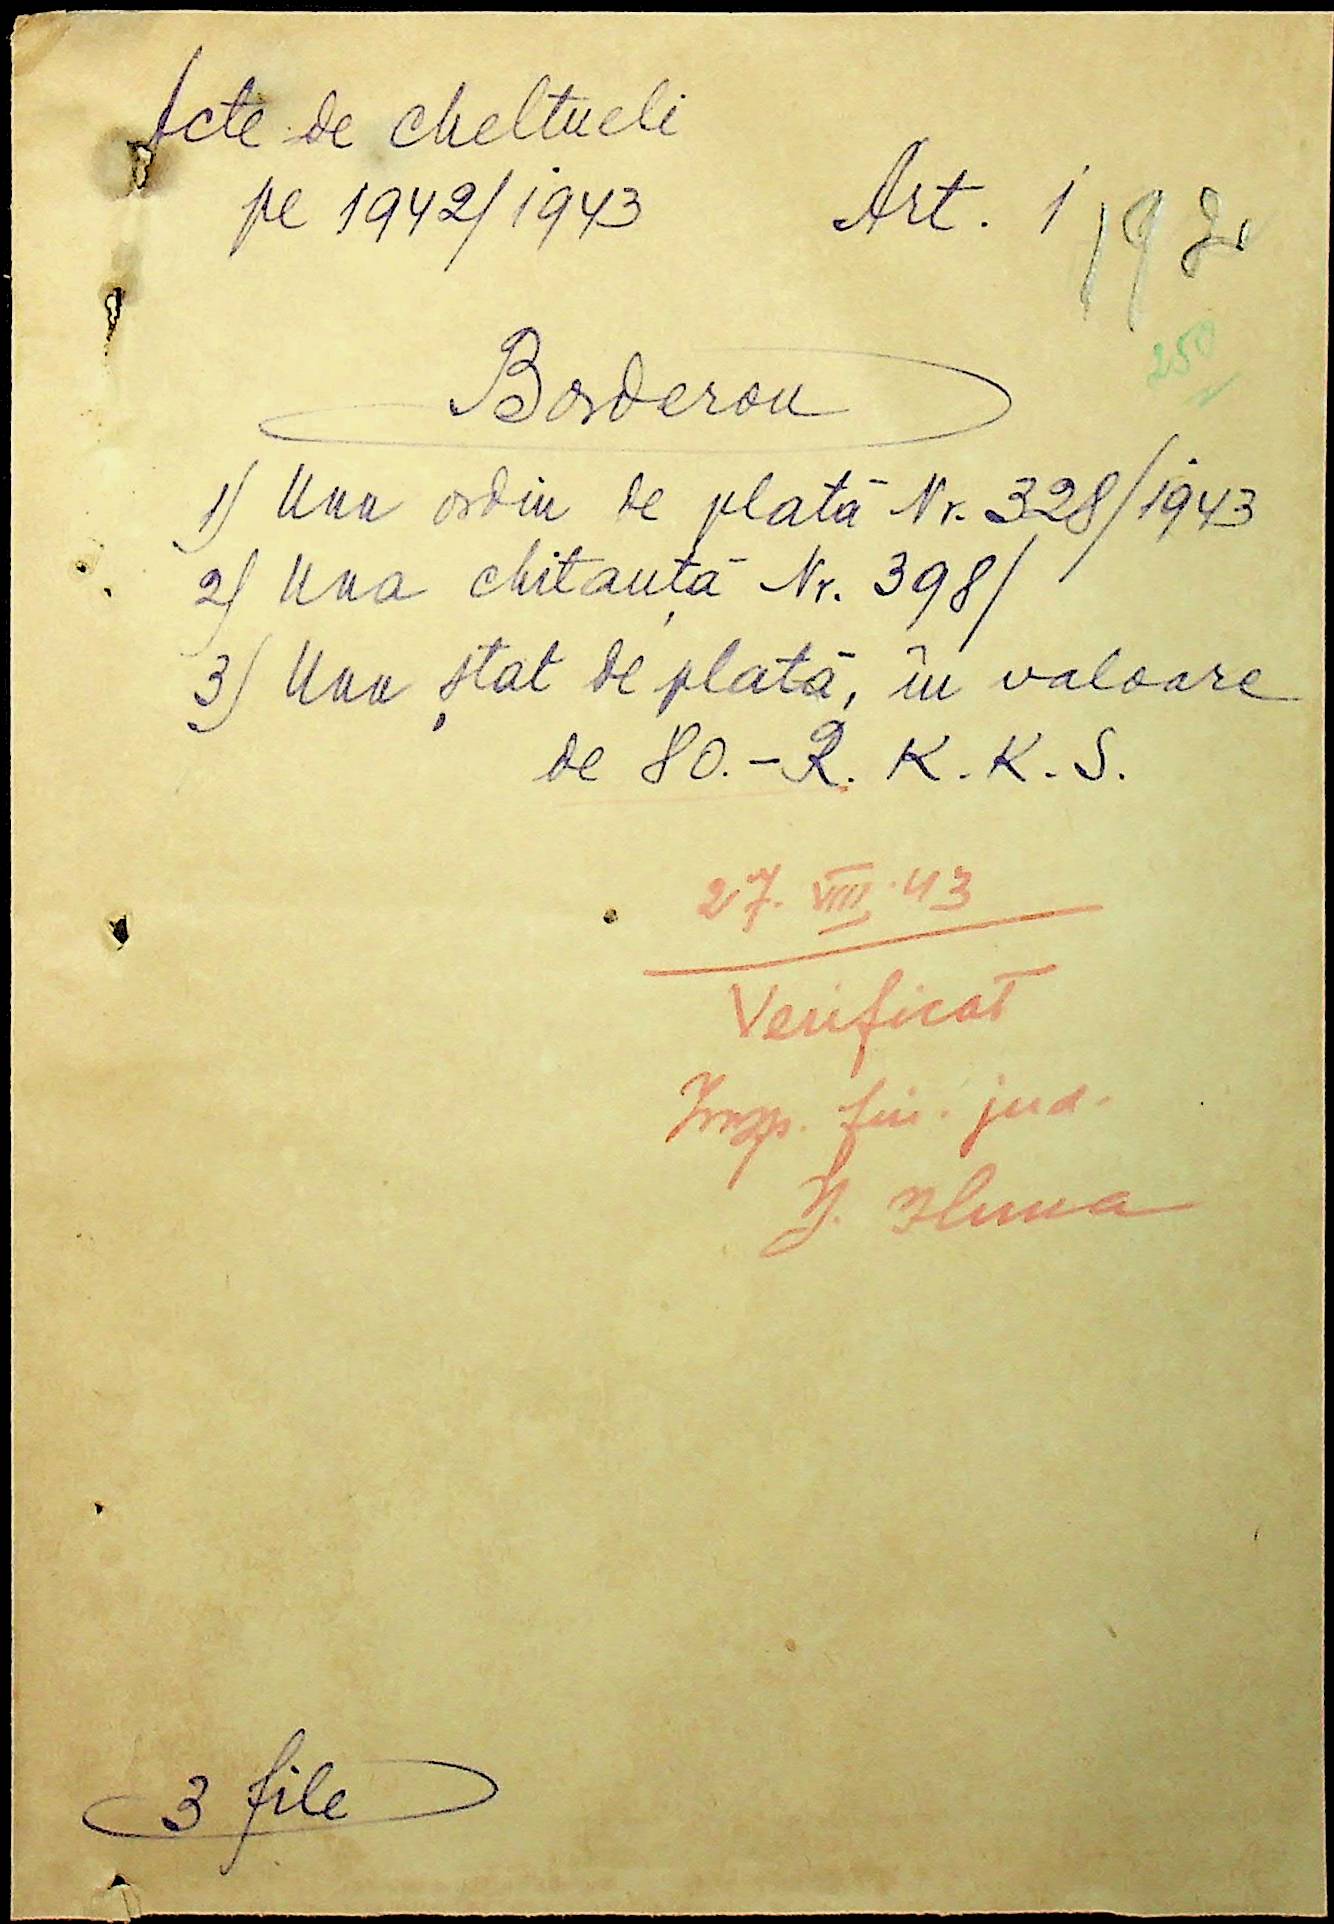 Acte de cheltueli
pe 1942/1943 Art. 1
250
Borderou
1) Unu ordin de plată Nr. 328/1943
2) Una chitanță Nr. 398/
3) Unu ștat de plată, în valoare
de 80.- R. K. K. S.
27. VIII. 43
Verificat
Insp. fin. jud.
3 file